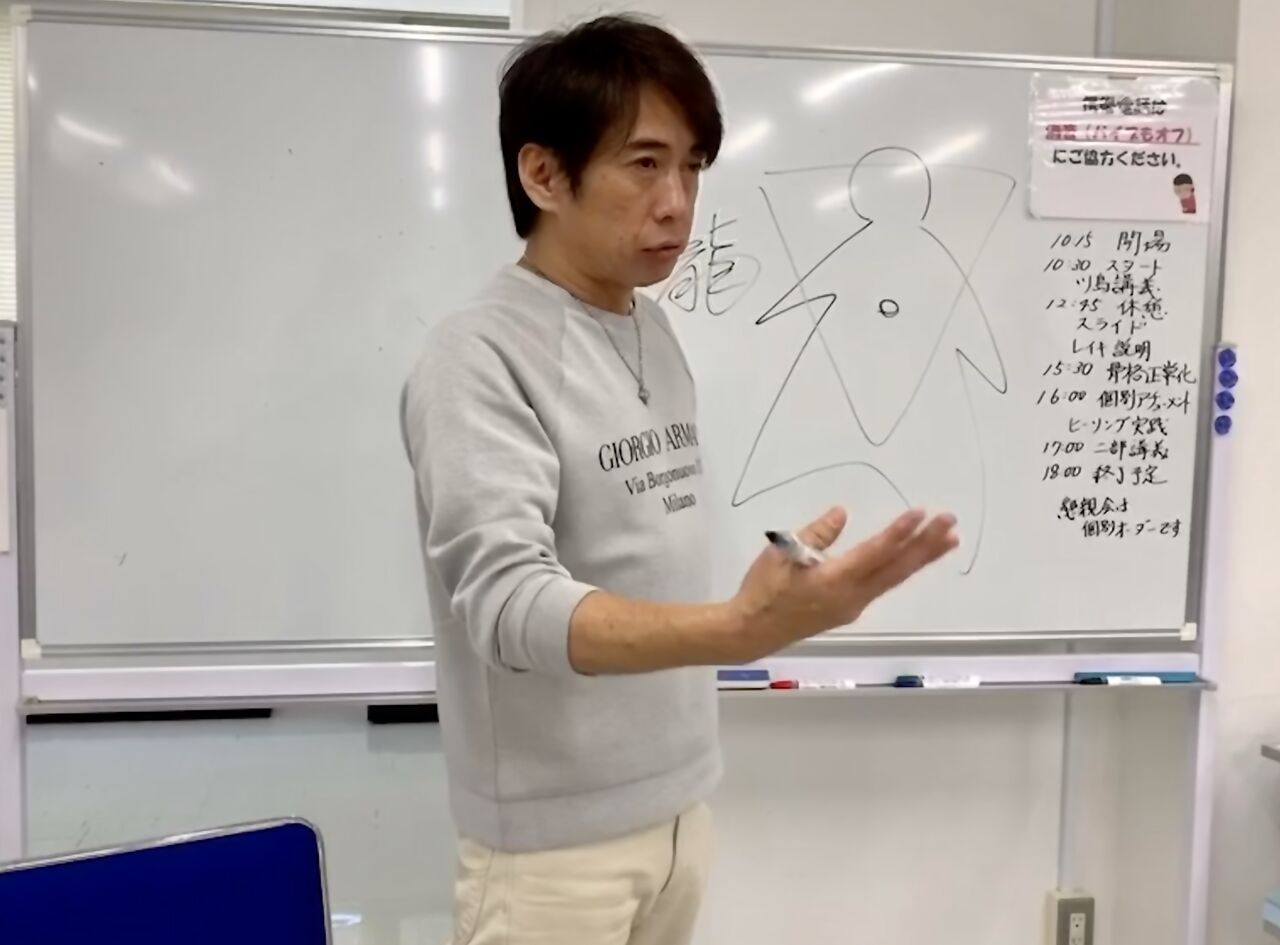 龍
GIORGIO ARMA
Via Borgonuovo
Milano
携帯電話は
消音（バイブもオフ）
にご協力ください。
10:15 開場
10:30 スタート
講義
12:45 休憩
スライド
レイキ説明
15:30 骨格正常化
16:00 個別アチューメント
ヒーリング実践
17:00 二部講義
18:00 終了予定
懇親会は
個別オーダーです